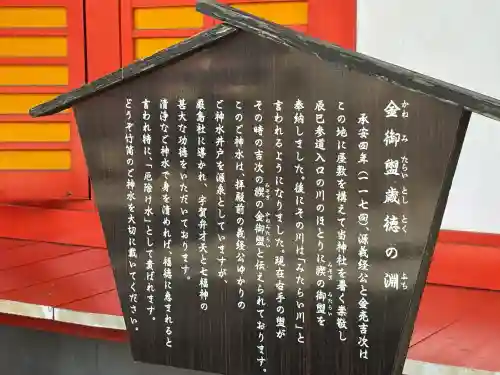 金御盥歳徳の淵
かね みたらい としとく ふち
承安四年(一一七四)、源義経公と金売吉次は
この地に屋敷を構えて当神社を篤く崇敬し
辰巳参道入口の川のほとりに禊の御盥を
みそぎ みたらい
奉納しました。後にその川は「みたらい川」と
言われるようになりました。現在右手の盥が
その時の吉次の禊の金御盥と伝えられております。
みそぎ かねみたらい
このご神水は、拝殿前の義公ゆかりの
ご神水井戸を源泉としていますが、
厳島社に導かれ、宇賀弁才天と七福神の
甚大な功徳をいただいております。
清浄なご神水で身を清めれば、福徳に恵まれると
言われ特に、「厄除け水」として貴ばれます。
どうぞ竹筒のご神水を大切に戴いてください。